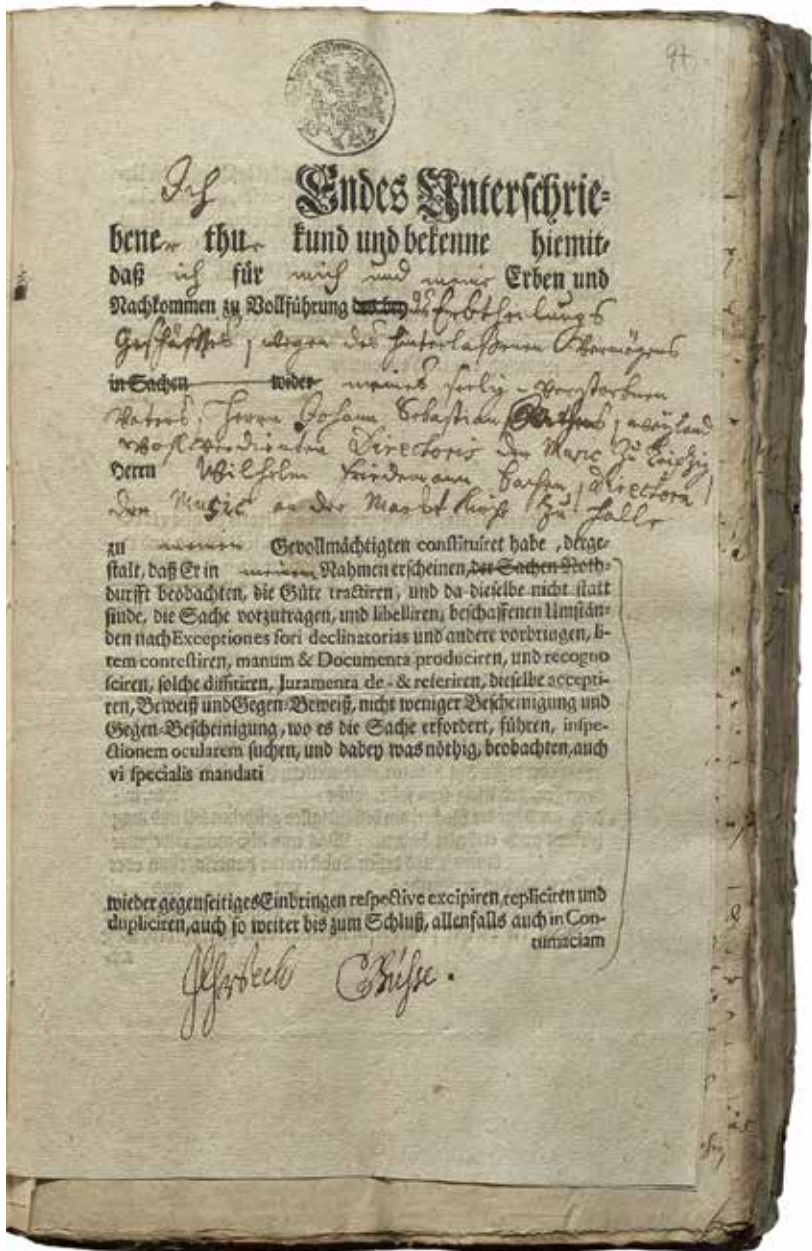 97
Ich Endes Unterschrie-
bener thue kund und bekenne hiemit,
daß ich für mich und meine Erben und
Nachkommen zu Vollführung des Erbtheilungs
Geschäfftes, wegen des hinterlaßenen Vermögens
in Sachen wider meines seelig-verstorbnen
Vaters, Herrn Johann Sebastian Bachens, weyland
wohlverdienten Directoris der Music zu Leipzig
Herrn Wilhelm Friedemann Bachen, Directorn
der Music an der Marckt Kirche zu Halle
zu meinen Gevollmächtigten constituiret habe, derge-
stalt, daß Er in meinem Nahmen erscheinen, der Sachen Noth-
durfft beobachten, die Güte tractiren, und da dieselbe nicht statt
finde, die Sache vorzutragen, und libelliren, beschaffenen Umstän-
den nach Exceptiones fori declinatorias und andere vorbringen, li-
tem contestiren, manum & Documenta produciren, und recogno
sciren, solche diffitiren, Juramenta de- & referiren, dieselbe accepti-
ren, Beweiß und Gegen-Beweiß, nicht weniger Bescheinigung und
Gegen-Bescheinigung, wo es die Sache erfordert, führen, inspe-
ctionem ocularem suchen, und dabey was nöthig, beobachten, auch
vi specialis mandati
wieder gegenseitiges Einbringen respective excipiren, repliciren und
dupliciren, auch so weiter bis zum Schluß, allenfalls auch in Con-
tumaciam